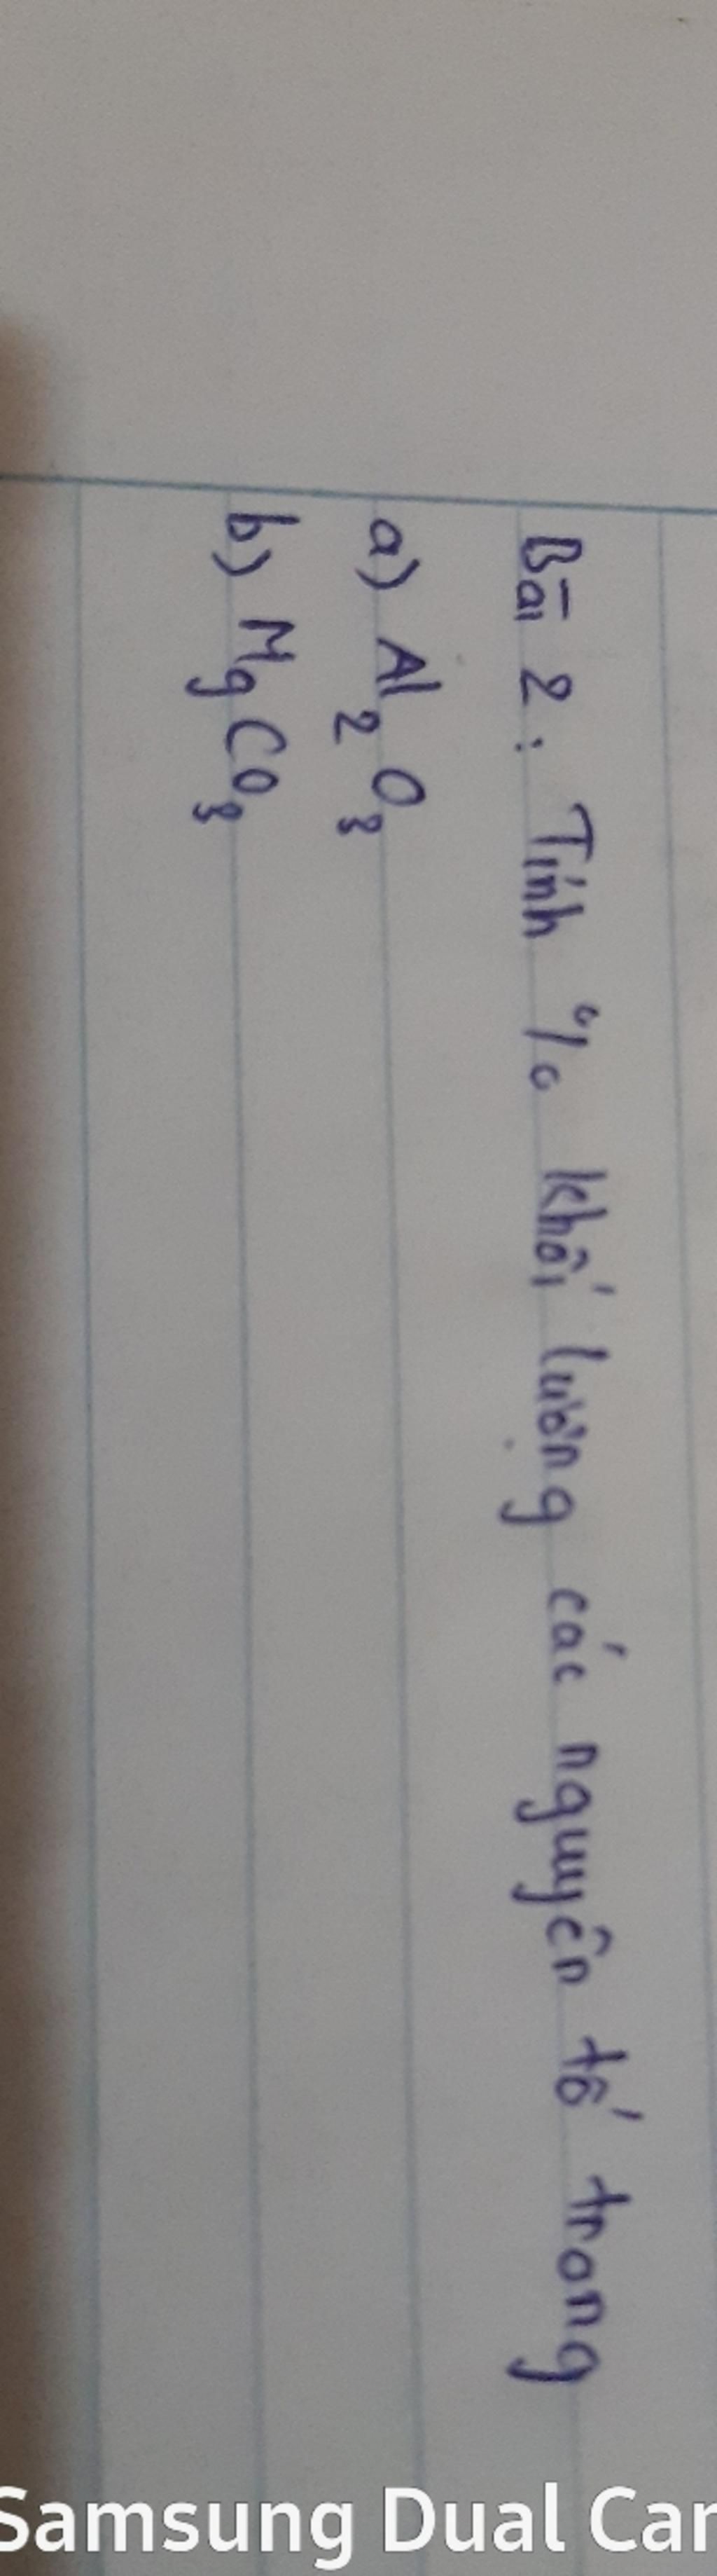 Bài 2: Tính % khối lượng các nguyên tố trong
a) Al2O3
b) MgCO3
Samsung Dual Cam